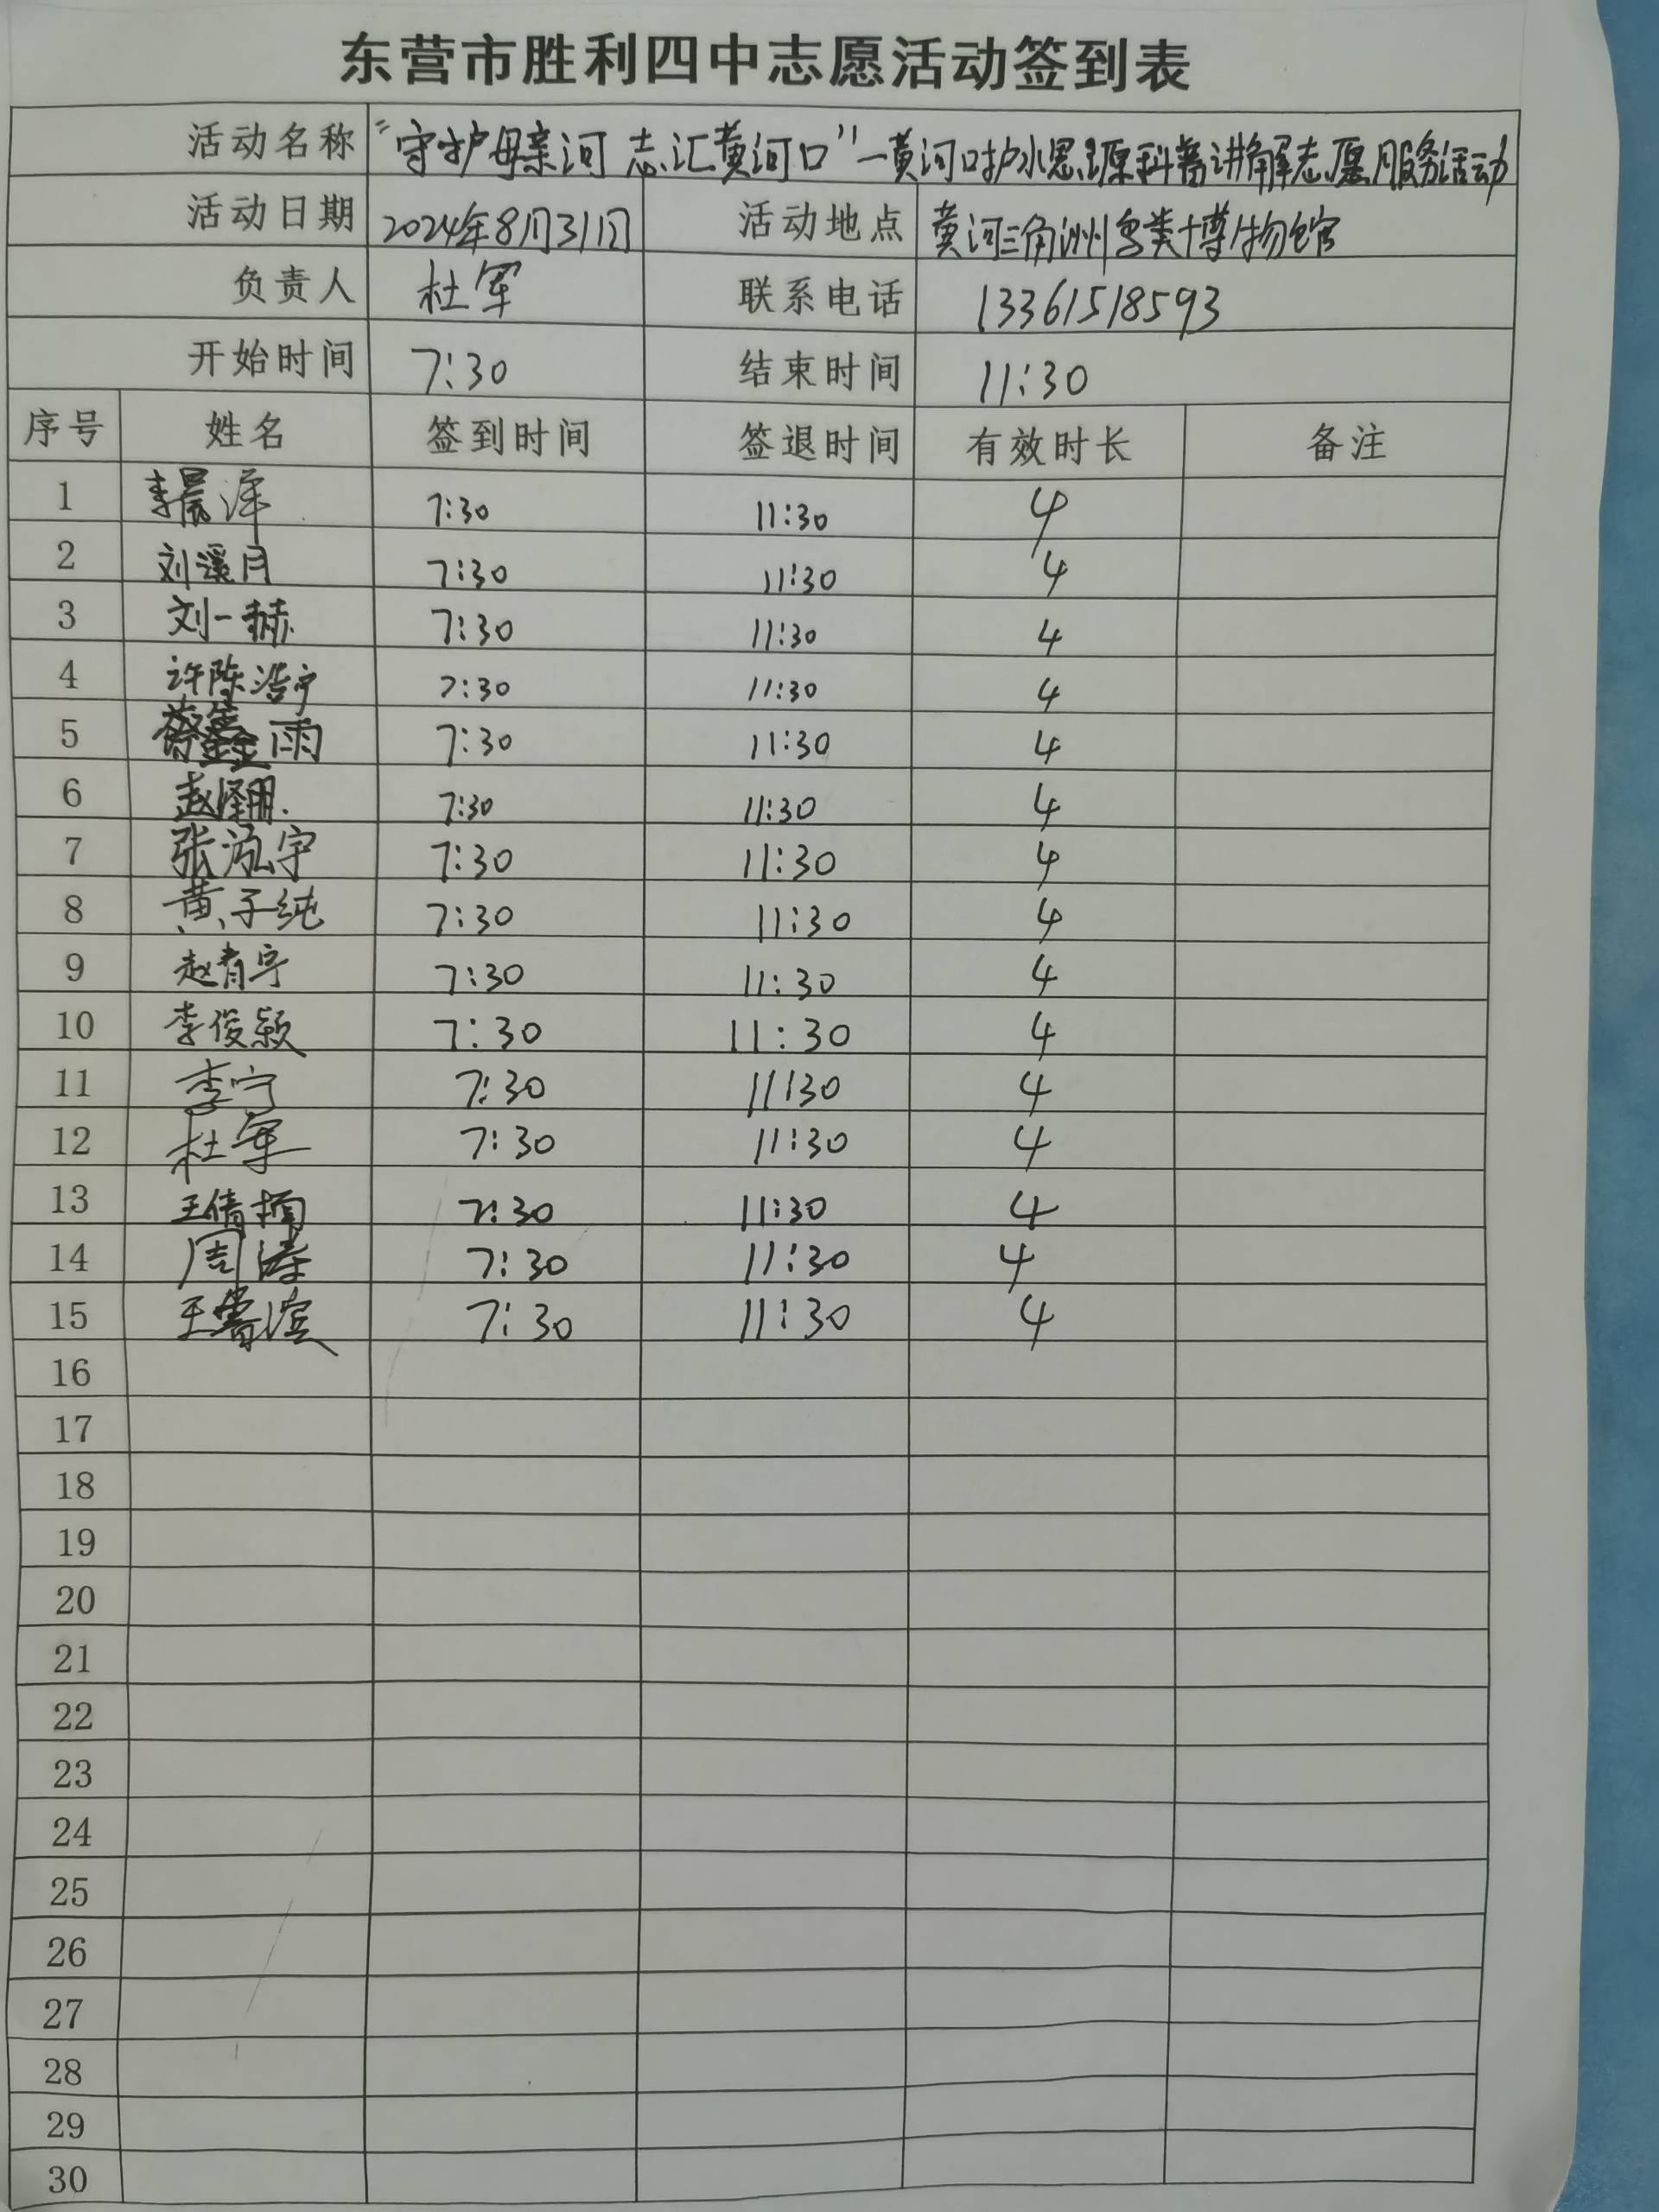 东营市胜利四中志愿活动签到表
活动名称 “守护母亲河 志汇黄河口”—黄河口护水思源科普讲解志愿服务活动
活动日期 2024年8月31日 活动地点 黄河三角洲鸟类博物馆
负责人 杜军 联系电话 13361518593
开始时间 7:30 结束时间 11:30
序号 姓名 签到时间 签退时间 有效时长 备注
1 李晨泽 7:30 11:30 4
2 刘溪月 7:30 11:30 4
3 刘一赫 7:30 11:30 4
4 许陈浩宁 7:30 11:30 4
5 蔡鑫雨 7:30 11:30 4
6 7:30 11:30 4
7 张泓宇 7:30 11:30 4
8 黄子纯 7:30 11:30 4
9 赵青宇 7:30 11:30 4
10 李俊颖 7:30 11:30 4
11 李宁 7:30 11:30 4
12 杜军 7:30 11:30 4
13 王倩楠 7:30 11:30 4
14 周涛 7:30 11:30 4
15 7:30 11:30 4
16
17
18
19
20
21
22
23
24
25
26
27
28
29
30